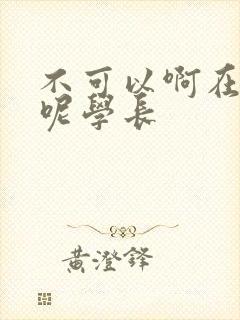 不可以啊在
呢學長
黄澄鋒